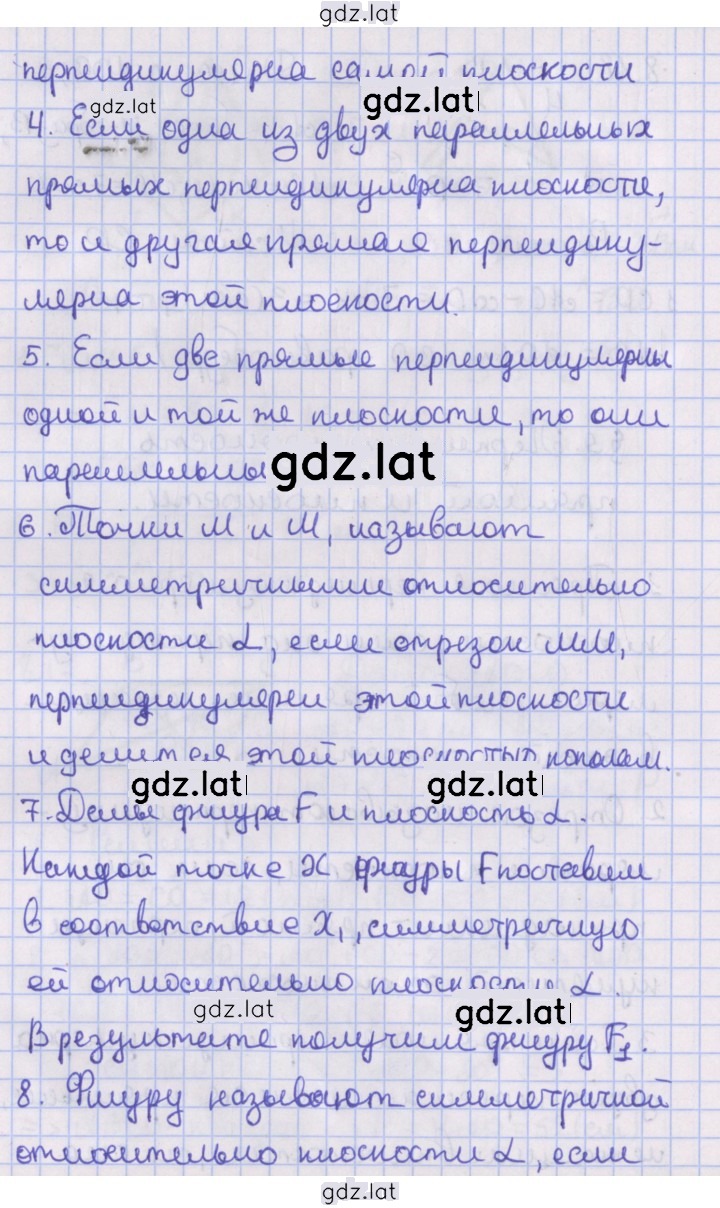 gdz.lat
перпендикулярна самой плоскости
gdz.lat gdz.lat
4. Если одна из двух параллельных
прямых перпендикулярна плоскости,
то и другая прямая перпендику-
лярна этой плоскости.
5. Если две прямые перпендикулярны
одной и той же плоскости, то они
параллельны gdz.lat
6. Точки М и М₁ называют
симметричными относительно
плоскости α, если отрезок ММ₁
перпендикулярен этой плоскости
и делится этой плоскостью пополам.
gdz.lat gdz.lat
7. Даны фигура F и плоскость α.
Каждой точке X фигуры F поставим
в соответствие X₁, симметричную
ей относительно плоскости α.
gdz.lat gdz.lat
В результате получим фигуру F₁.
8. Фигуру называют симметричной
относительно плоскости α, если
gdz.lat